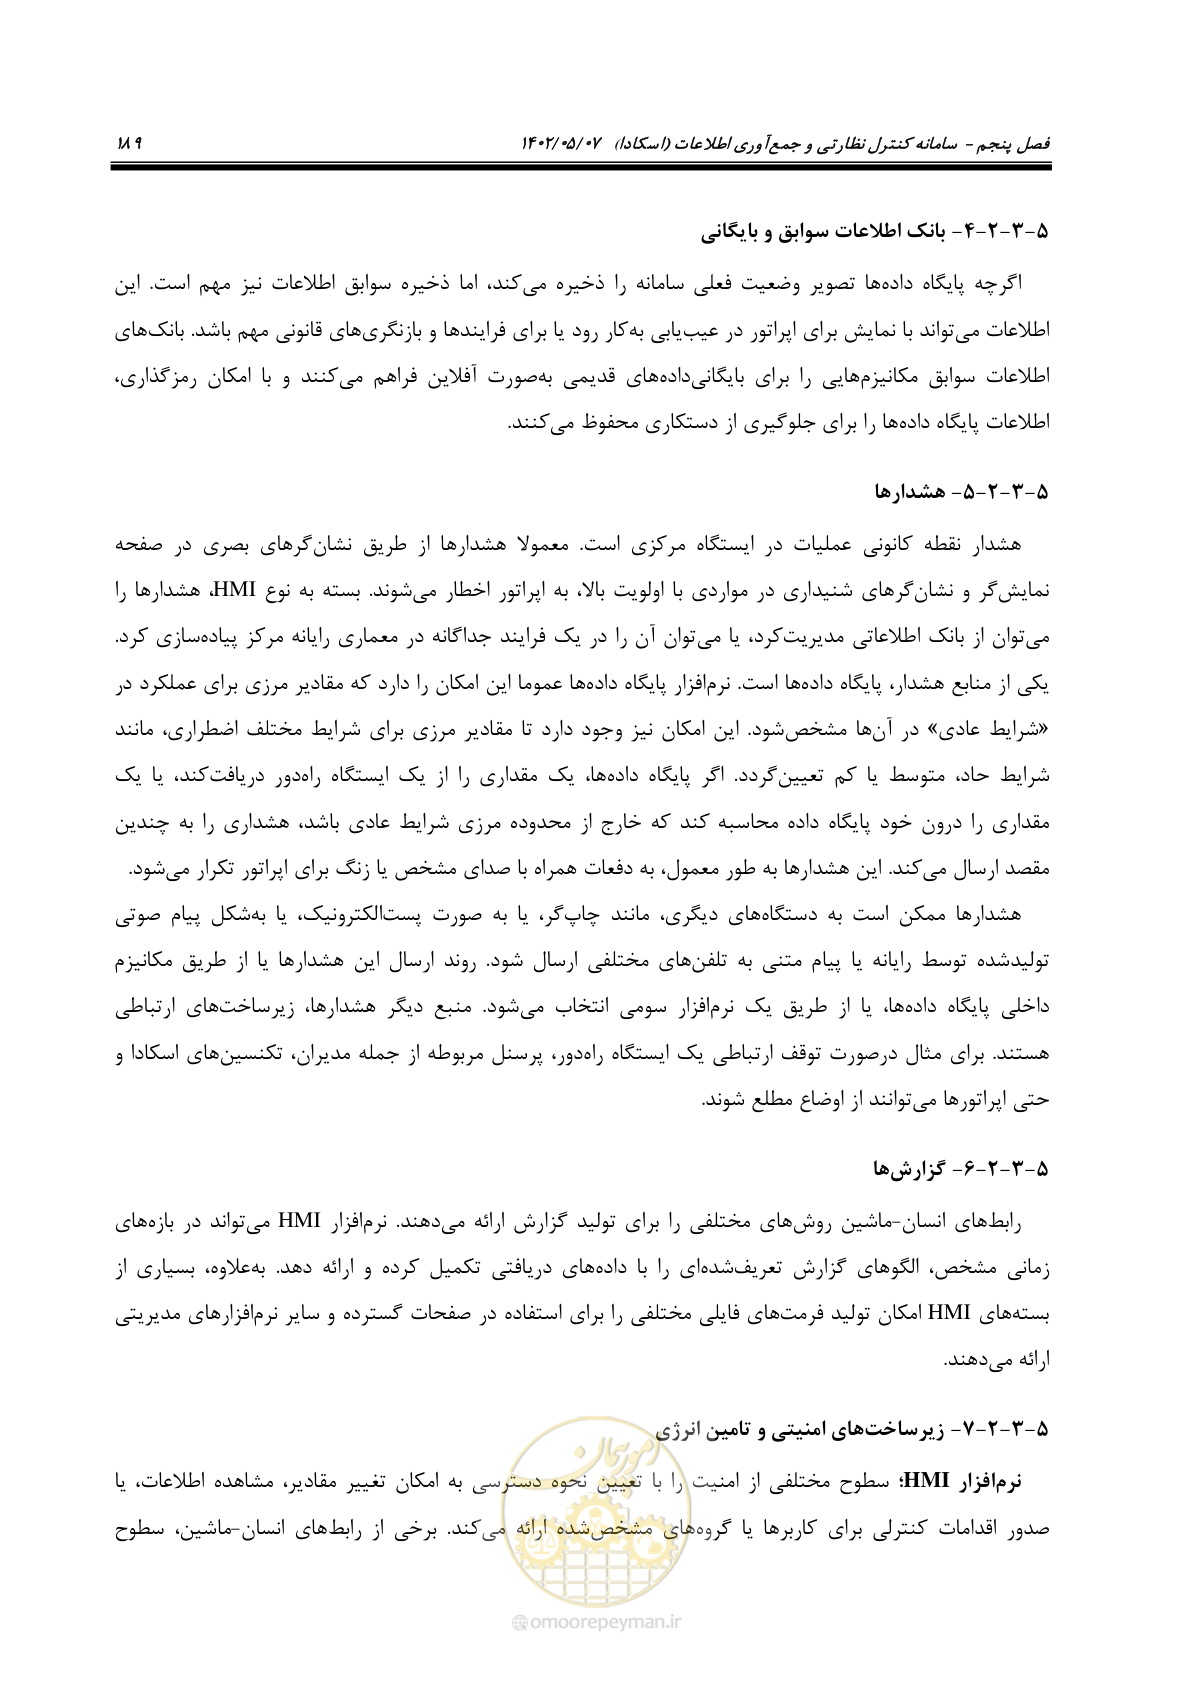 فصل پنجم - سامانه کنترل نظارتی و جمع‌آوری اطلاعات (اسکادا) ۱۴۰۲/۰۵/۰۷ ۱۸۹
۵-۳-۲-۴- بانک اطلاعات سوابق و بایگانی
اگرچه پایگاه داده‌ها تصویر وضعیت فعلی سامانه را ذخیره می‌کند، اما ذخیره سوابق اطلاعات نیز مهم است. این
اطلاعات می‌تواند با نمایش برای اپراتور در عیب‌یابی به‌کار رود یا برای فرایندها و بازنگری‌های قانونی مهم باشد. بانک‌های
اطلاعات سوابق مکانیزم‌هایی را برای بایگانی‌داده‌های قدیمی به‌صورت آفلاین فراهم می‌کنند و با امکان رمزگذاری،
اطلاعات پایگاه داده‌ها را برای جلوگیری از دستکاری محفوظ می‌کنند.
۵-۳-۲-۵- هشدارها
هشدار نقطه کانونی عملیات در ایستگاه مرکزی است. معمولا هشدارها از طریق نشان‌گرهای بصری در صفحه
نمایش‌گر و نشان‌گرهای شنیداری در مواردی با اولویت بالا، به اپراتور اخطار می‌شوند. بسته به نوع HMI، هشدارها را
می‌توان از بانک اطلاعاتی مدیریت‌کرد، یا می‌توان آن را در یک فرایند جداگانه در معماری رایانه مرکز پیاده‌سازی کرد.
یکی از منابع هشدار، پایگاه داده‌ها است. نرم‌افزار پایگاه داده‌ها عموما این امکان را دارد که مقادیر مرزی برای عملکرد در
«شرایط عادی» در آن‌ها مشخص‌شود. این امکان نیز وجود دارد تا مقادیر مرزی برای شرایط مختلف اضطراری، مانند
شرایط حاد، متوسط یا کم تعیین‌گردد. اگر پایگاه داده‌ها، یک مقداری را از یک ایستگاه راه‌دور دریافت‌کند، یا یک
مقداری را درون خود پایگاه داده محاسبه کند که خارج از محدوده مرزی شرایط عادی باشد، هشداری را به چندین
مقصد ارسال می‌کند. این هشدارها به طور معمول، به دفعات همراه با صدای مشخص یا زنگ برای اپراتور تکرار می‌شود.
هشدارها ممکن است به دستگاه‌های دیگری، مانند چاپ‌گر، یا به صورت پست‌الکترونیک، یا به‌شکل پیام صوتی
تولیدشده توسط رایانه یا پیام متنی به تلفن‌های مختلفی ارسال شود. روند ارسال این هشدارها یا از طریق مکانیزم
داخلی پایگاه داده‌ها، یا از طریق یک نرم‌افزار سومی انتخاب می‌شود. منبع دیگر هشدارها، زیرساخت‌های ارتباطی
هستند. برای مثال درصورت توقف ارتباطی یک ایستگاه راه‌دور، پرسنل مربوطه از جمله مدیران، تکنسین‌های اسکادا و
حتی اپراتورها می‌توانند از اوضاع مطلع شوند.
۵-۳-۲-۶- گزارش‌ها
رابط‌های انسان-ماشین روش‌های مختلفی را برای تولید گزارش ارائه می‌دهند. نرم‌افزار HMI می‌تواند در بازه‌های
زمانی مشخص، الگوهای گزارش تعریف‌شده‌ای را با داده‌های دریافتی تکمیل کرده و ارائه دهد. به‌علاوه، بسیاری از
بسته‌های HMI امکان تولید فرمت‌های فایلی مختلفی را برای استفاده در صفحات گسترده و سایر نرم‌افزارهای مدیریتی
ارائه می‌دهند.
۵-۳-۲-۷- زیرساخت‌های امنیتی و تامین انرژی
نرم‌افزار HMI؛ سطوح مختلفی از امنیت را با تعیین نحوه دسترسی به امکان تغییر مقادیر، مشاهده اطلاعات، یا
صدور اقدامات کنترلی برای کاربرها یا گروه‌های مشخص‌شده ارائه می‌کند. برخی از رابط‌های انسان-ماشین، سطوح
امور پیمان
omoorepeyman.ir